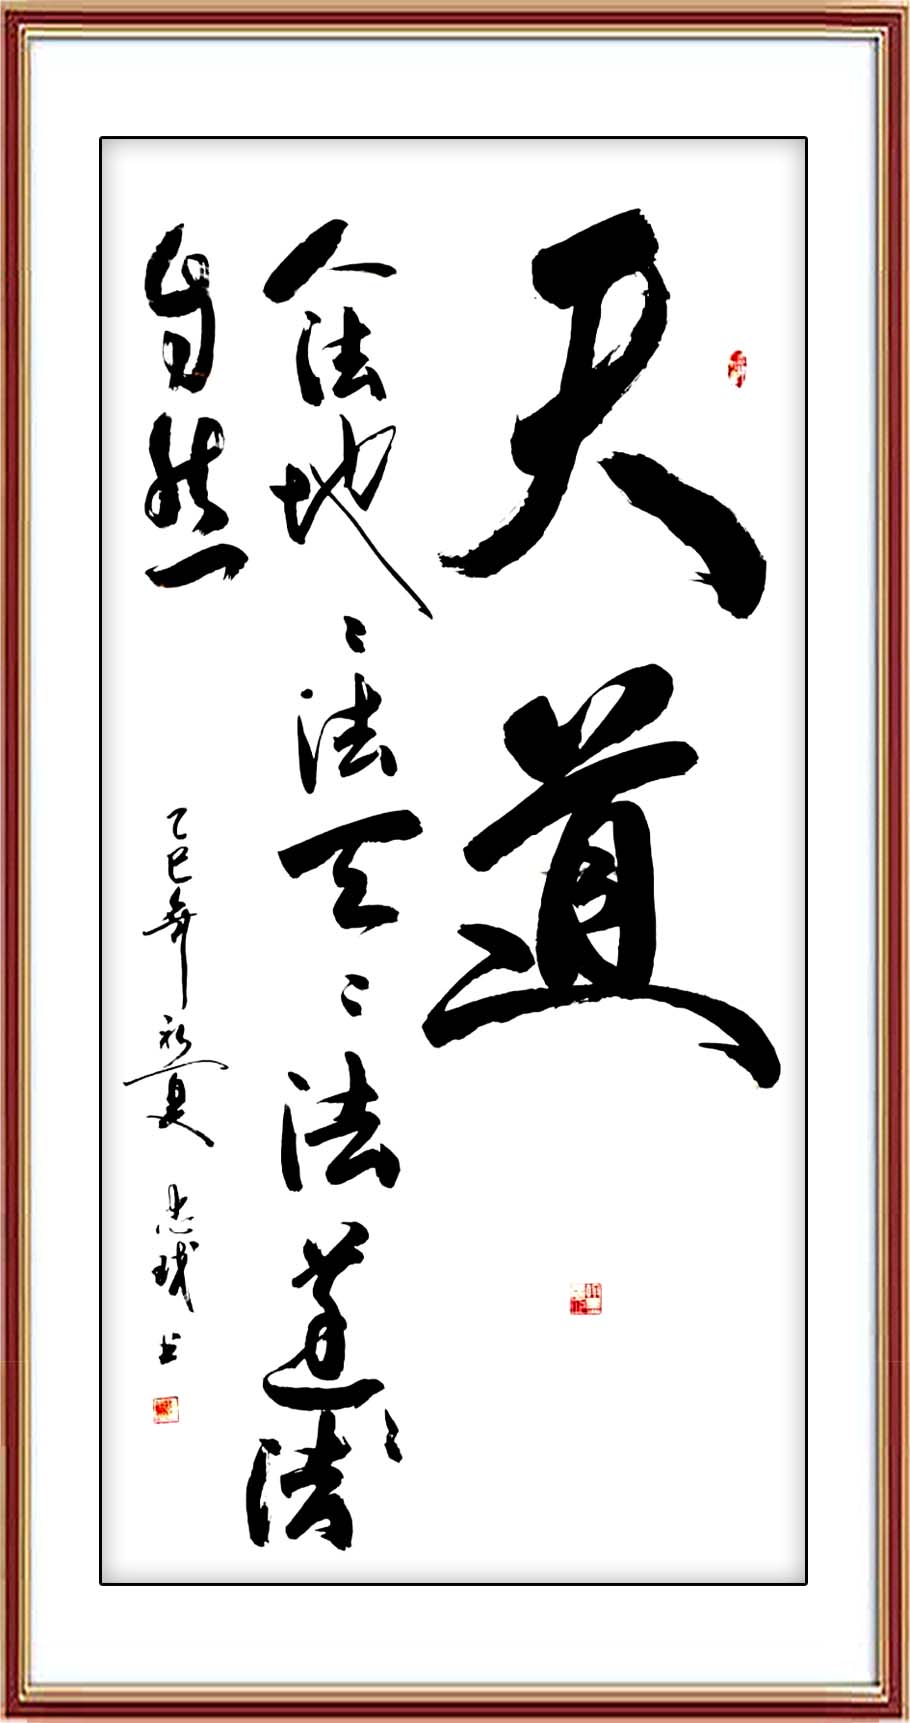 天道
人法地〻法天〻法道〻法
自然
乙巳年初夏 志球书